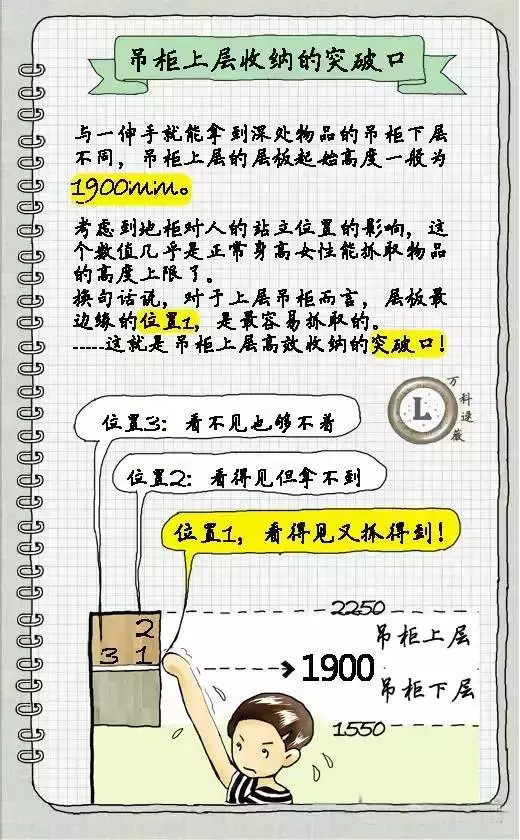 吊柜上层收纳的突破口
与一伸手就能拿到深处物品的吊柜下层
不同，吊柜上层的层板起始高度一般为
1900mm。
考虑到地柜对人的站立位置的影响，这
个数值几乎是正常身高女性能抓取物品
的高度上限了。
换句话说，对于上层吊柜而言，层板最
边缘的位置1，是最容易抓取的。
-----这就是吊柜上层高效收纳的突破口！
L
万科逯薇
位置3：看不见也够不着
位置2：看得见但拿不到
位置1，看得见又抓得到！
2250
吊柜上层
2
3 1
1900
吊柜下层
1550